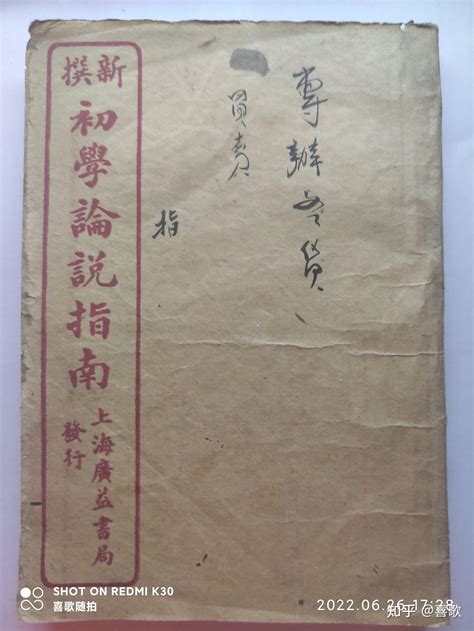 專辦各貨
買賣
指
新撰
初學論説指南
上海廣益書局
發行
SHOT ON REDMI K30
喜歌随拍
2022.06.26 17:28
知乎 @喜歌